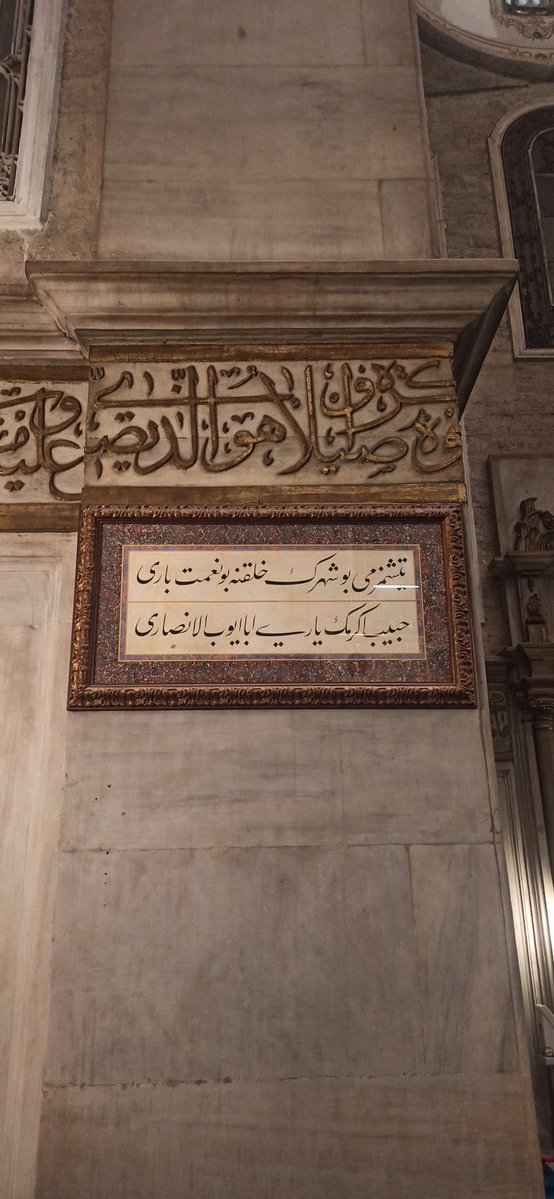 وه بكرة واصيلا هو الذي يصلي عليكم و
يتشمزمی بو شهرك خلقنه بو نعمت باری
حبيب اكرمك ياری ابا ايوب الانصاری